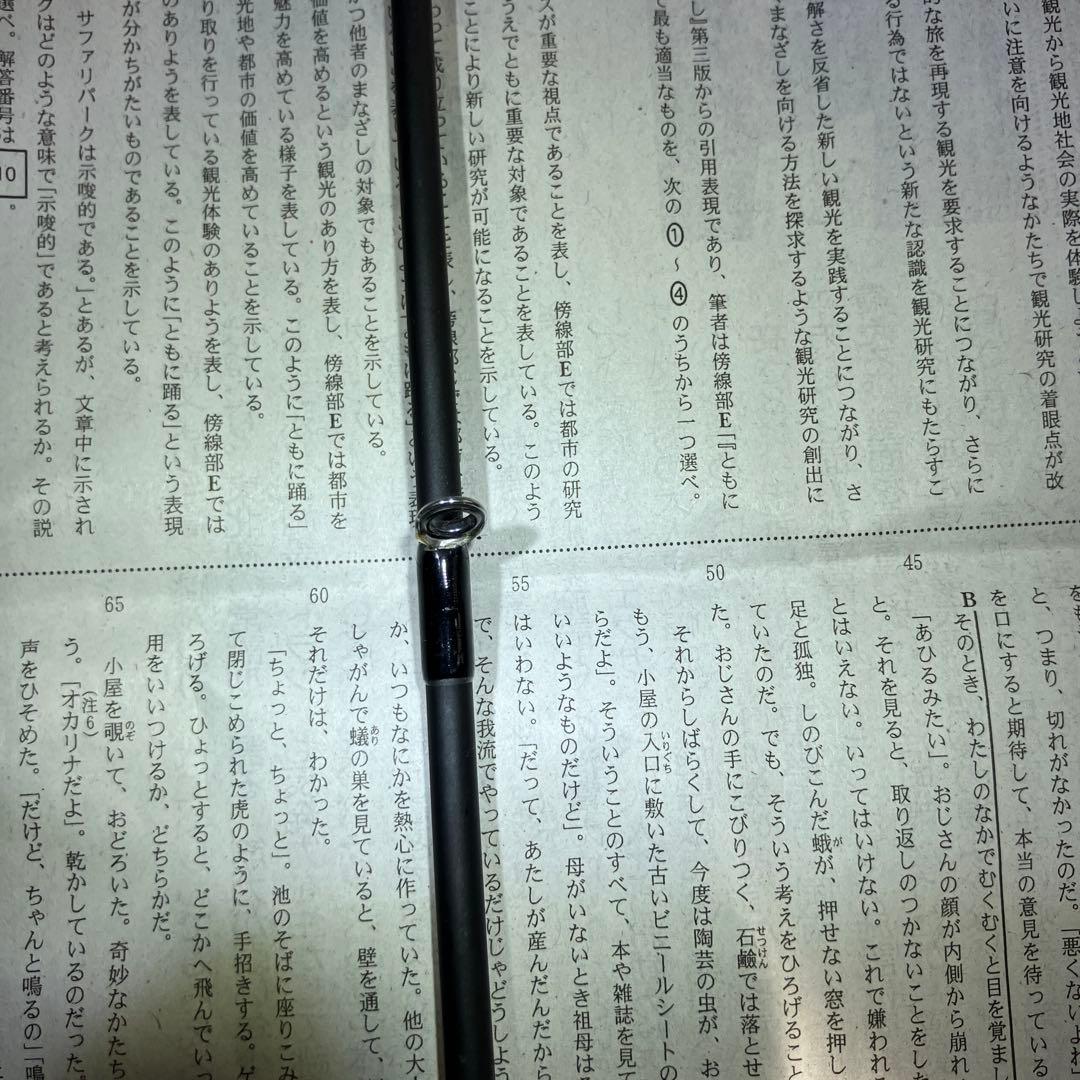 観光から観光地社会の実際を体験し
いに注意を向けるようなかたちで観光研究の着眼点が改
的な旅を再現する観光を要求することにつながり、さらに
る行為ではないという新たな認識を観光研究にもたらすこ
解さを反省した新しい観光を実践することにつながり、さ
まなざしを向ける方法を探求するような観光研究の創出に
し』第三版からの引用表現であり、筆者は傍線部E「『ともに
で最も適当なものを、次の①～④のうちから一つ選べ。
スが重要な視点であることを表し、傍線部Eでは都市の研究
うえでともに重要な対象であることを表している。このよう
ことにより新しい研究が可能になることを示している。
かつ他者のまなざしの対象でもあることを示している。
価値を高めるという観光のあり方を表し、傍線部Eでは都市を
魅力を高めている様子を表している。このように「ともに踊る」
光地や都市の価値を高めていることを示している。
り取りを行っている観光体験のありようを表し、傍線部Eでは
のありようを表している。このように「ともに踊る」という表現
が分かちがたいものであることを示している。
サファリパークは示唆的である。」とあるが、文章中に示され
クはどのような意味で「示唆的」であると考えられるか。その説
選べ。解答番号は10。
と、つまり、切れがなかったのだ。「悪くないよね」
を口にすると期待して、本当の意見を待っている
Bそのとき、わたしのなかでむくむくと目を覚まし
45
「あひるみたい」。おじさんの顔が内側から崩れ
と。それを見ると、取り返しのつかないことをした
とはいえない。いってはいけない。これで嫌われ
足と孤独。しのびこんだ蛾が、押せない窓を押し
ていたのだ。でも、そういう考えをひろげること
50
た。おじさんの手にこびりつく、石鹼では落とせ
それからしばらくして、今度は陶芸の虫が、お
もう、小屋の入口に敷いた古いビニールシートの
らだよ」。そういうことのすべて、本や雑誌を見て
いいようなものだけど」。母がいないとき祖母は
55
はいわない。「だって、あたしが産んだんだから
で、そんな我流でやっているだけじゃどうしよう
か、いつもなにかを熱心に作っていた。他の大
しゃがんで蟻の巣を見ていると、壁を通して、
60
それだけは、わかった。
「ちょっと、ちょっと」。池のそばに座りこみ
て閉じこめられた虎のように、手招きする。ゲ
ろげる。ひょっとすると、どこかへ飛んでいっ
用をいいつけるか、どちらかだ。
65
小屋を覗いて、おどろいた。奇妙なかたち
う。「オカリナだよ」。乾かしているのだった。
(注6)
声をひそめた。「だけど、ちゃんと鳴るの」「鳴